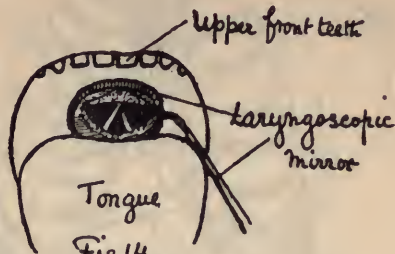 Upper front teeth
Laryngoscopic
mirror
Tongue
Fig 14